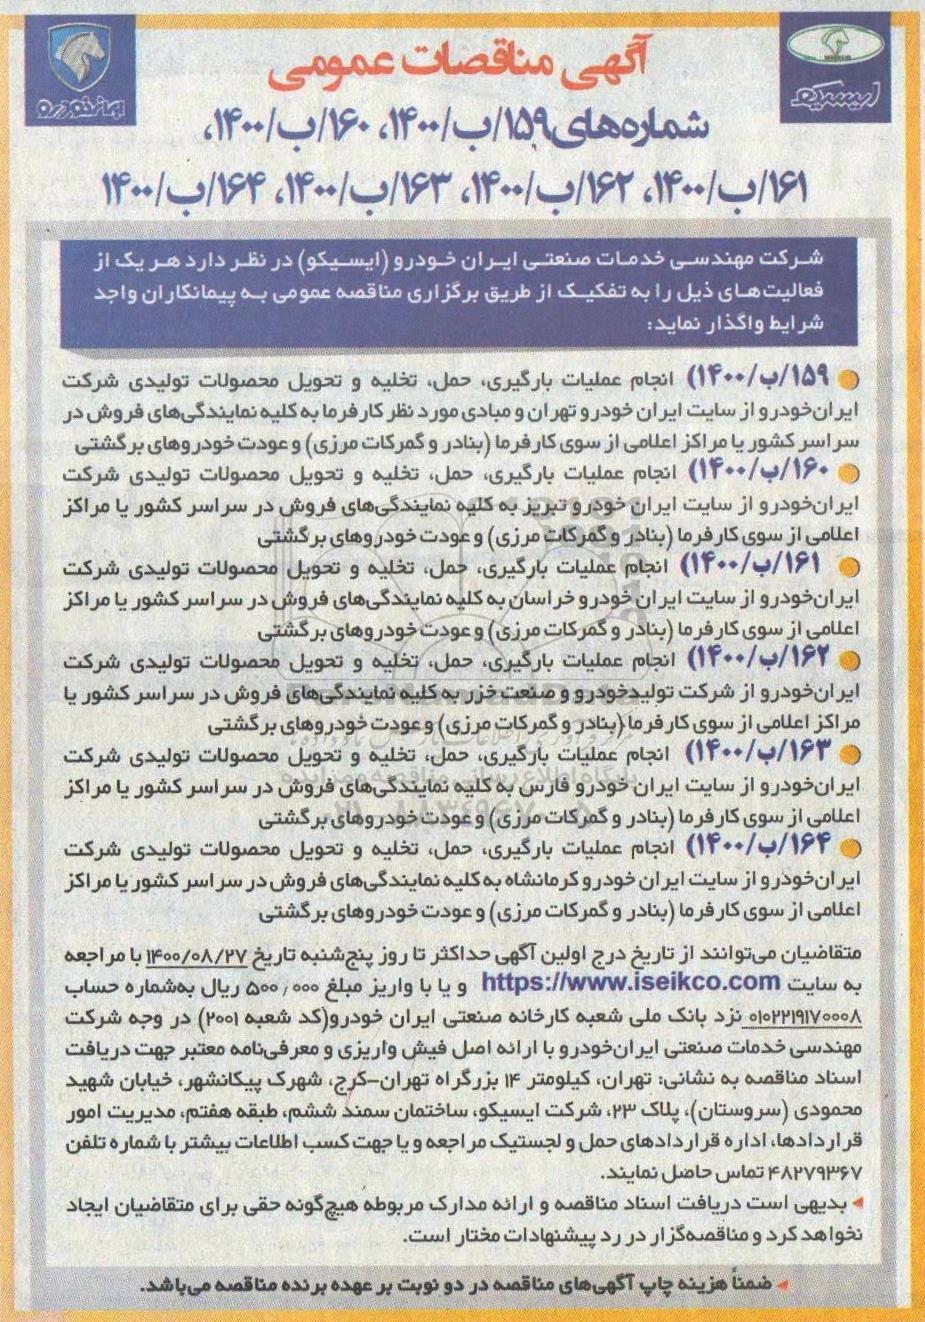 ISEIKCO
ایسیکو
ایران خودرو
آگهی مناقصات عمومی
شماره‌های ۱۵۹/ب/۱۴۰۰، ۱۶۰/ب/۱۴۰۰،
۱۶۱/ب/۱۴۰۰، ۱۶۲/ب/۱۴۰۰، ۱۶۳/ب/۱۴۰۰، ۱۶۴/ب/۱۴۰۰
شرکت مهندسی خدمات صنعتی ایران خودرو (ایسیکو) در نظر دارد هر یک از
فعالیت‌های ذیل را به تفکیک از طریق برگزاری مناقصه عمومی به پیمانکاران واجد
شرایط واگذار نماید:
۱۵۹/ب/۱۴۰۰) انجام عملیات بارگیری، حمل، تخلیه و تحویل محصولات تولیدی شرکت
ایران‌خودرو از سایت ایران خودرو تهران و مبادی مورد نظر کارفرما به کلیه نمایندگی‌های فروش در
سراسر کشور یا مراکز اعلامی از سوی کارفرما (بنادر و گمرکات مرزی) و عودت خودروهای برگشتی
۱۶۰/ب/۱۴۰۰) انجام عملیات بارگیری، حمل، تخلیه و تحویل محصولات تولیدی شرکت
ایران‌خودرو از سایت ایران خودرو تبریز به کلیه نمایندگی‌های فروش در سراسر کشور یا مراکز
اعلامی از سوی کارفرما (بنادر و گمرکات مرزی) و عودت خودروهای برگشتی
۱۶۱/ب/۱۴۰۰) انجام عملیات بارگیری، حمل، تخلیه و تحویل محصولات تولیدی شرکت
ایران‌خودرو از سایت ایران خودرو خراسان به کلیه نمایندگی‌های فروش در سراسر کشور یا مراکز
اعلامی از سوی کارفرما (بنادر و گمرکات مرزی) و عودت خودروهای برگشتی
۱۶۲/ب/۱۴۰۰) انجام عملیات بارگیری، حمل، تخلیه و تحویل محصولات تولیدی شرکت
ایران‌خودرو از شرکت تولیدخودرو و صنعت خزر به کلیه نمایندگی‌های فروش در سراسر کشور یا
مراکز اعلامی از سوی کارفرما (بنادر و گمرکات مرزی) و عودت خودروهای برگشتی
۱۶۳/ب/۱۴۰۰) انجام عملیات بارگیری، حمل، تخلیه و تحویل محصولات تولیدی شرکت
ایران‌خودرو از سایت ایران خودرو فارس به کلیه نمایندگی‌های فروش در سراسر کشور یا مراکز
اعلامی از سوی کارفرما (بنادر و گمرکات مرزی) و عودت خودروهای برگشتی
۱۶۴/ب/۱۴۰۰) انجام عملیات بارگیری، حمل، تخلیه و تحویل محصولات تولیدی شرکت
ایران‌خودرو از سایت ایران خودرو کرمانشاه به کلیه نمایندگی‌های فروش در سراسر کشور یا مراکز
اعلامی از سوی کارفرما (بنادر و گمرکات مرزی) و عودت خودروهای برگشتی
متقاضیان می‌توانند از تاریخ درج اولین آگهی حداکثر تا روز پنج‌شنبه تاریخ ۱۴۰۰/۰۸/۲۷ با مراجعه
به سایت https://www.iseikco.com و یا با واریز مبلغ ۵۰۰,۰۰۰ ریال به‌شماره حساب
۰۱۰۲۲۱۹۱۷۰۰۰۸ نزد بانک ملی شعبه کارخانه صنعتی ایران خودرو(کد شعبه ۲۰۰۱) در وجه شرکت
مهندسی خدمات صنعتی ایران‌خودرو با ارائه اصل فیش واریزی و معرفی‌نامه معتبر جهت دریافت
اسناد مناقصه به نشانی: تهران، کیلومتر ۱۴ بزرگراه تهران–کرج، شهرک پیکانشهر، خیابان شهید
محمودی (سروستان)، پلاک ۲۳، شرکت ایسیکو، ساختمان سمند ششم، طبقه هفتم، مدیریت امور
قراردادها، اداره قراردادهای حمل و لجستیک مراجعه و یا جهت کسب اطلاعات بیشتر با شماره تلفن
۴۸۲۷۹۳۶۷ تماس حاصل نمایند.
بدیهی است دریافت اسناد مناقصه و ارائه مدارک مربوطه هیچ‌گونه حقی برای متقاضیان ایجاد
نخواهد کرد و مناقصه‌گزار در رد پیشنهادات مختار است.
ضمناً هزینه چاپ آگهی‌های مناقصه در دو نوبت بر عهده برنده مناقصه می‌باشد.